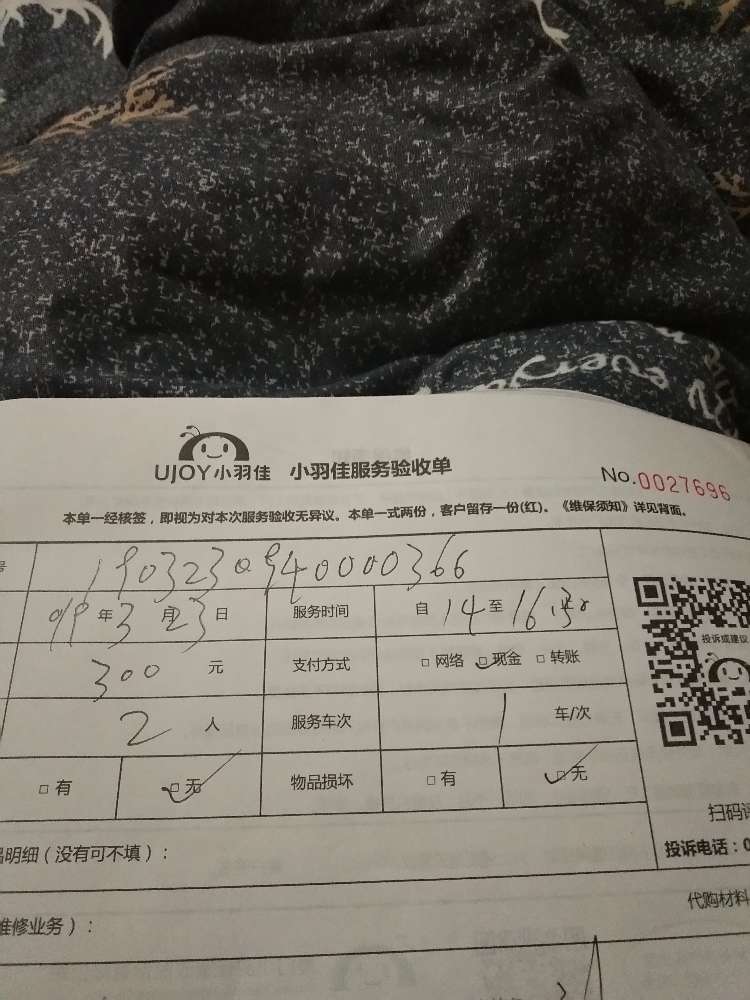 UJOY小羽佳 小羽佳服务验收单
No.0027696
本单一经核签，即视为对本次服务验收无异议。本单一式两份，客户留存一份(红)。《维保须知》详见背面。
号 1903230940000366
年3月23日 服务时间 自14至16:30
300 元 支付方式 □网络 □现金 □转账
投诉或建议
2 人 服务车次 1 车/次
□有 □无 物品损坏 □有 □无
扫码评
品明细（没有可不填）：
投诉电话：0
维修业务）：
代购材料